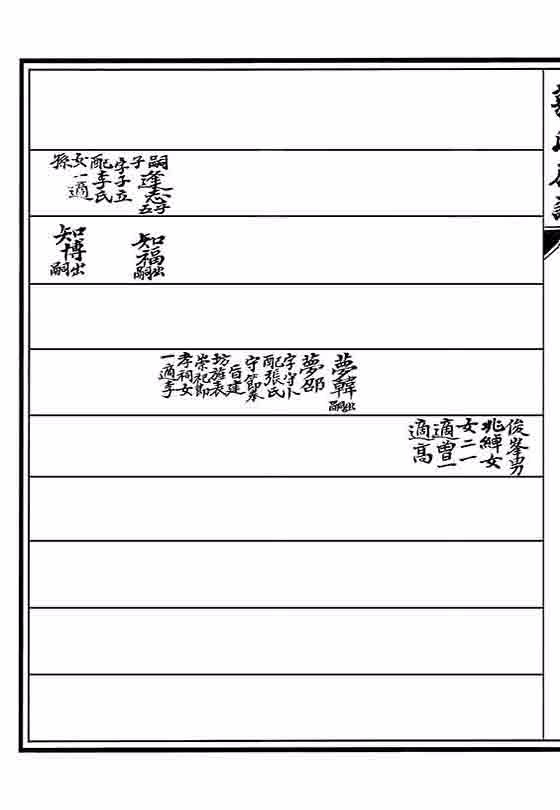 嗣逢志
子
字子立
配李氏
女一適
孫
知福出嗣
知博出嗣
夢韓出嗣
夢邵
字守卜
配張氏
守節奉
旨建
坊旌表
崇祀節
孝祠女
一適李
俊峯男
兆綽女
女二一
適曽一
適高